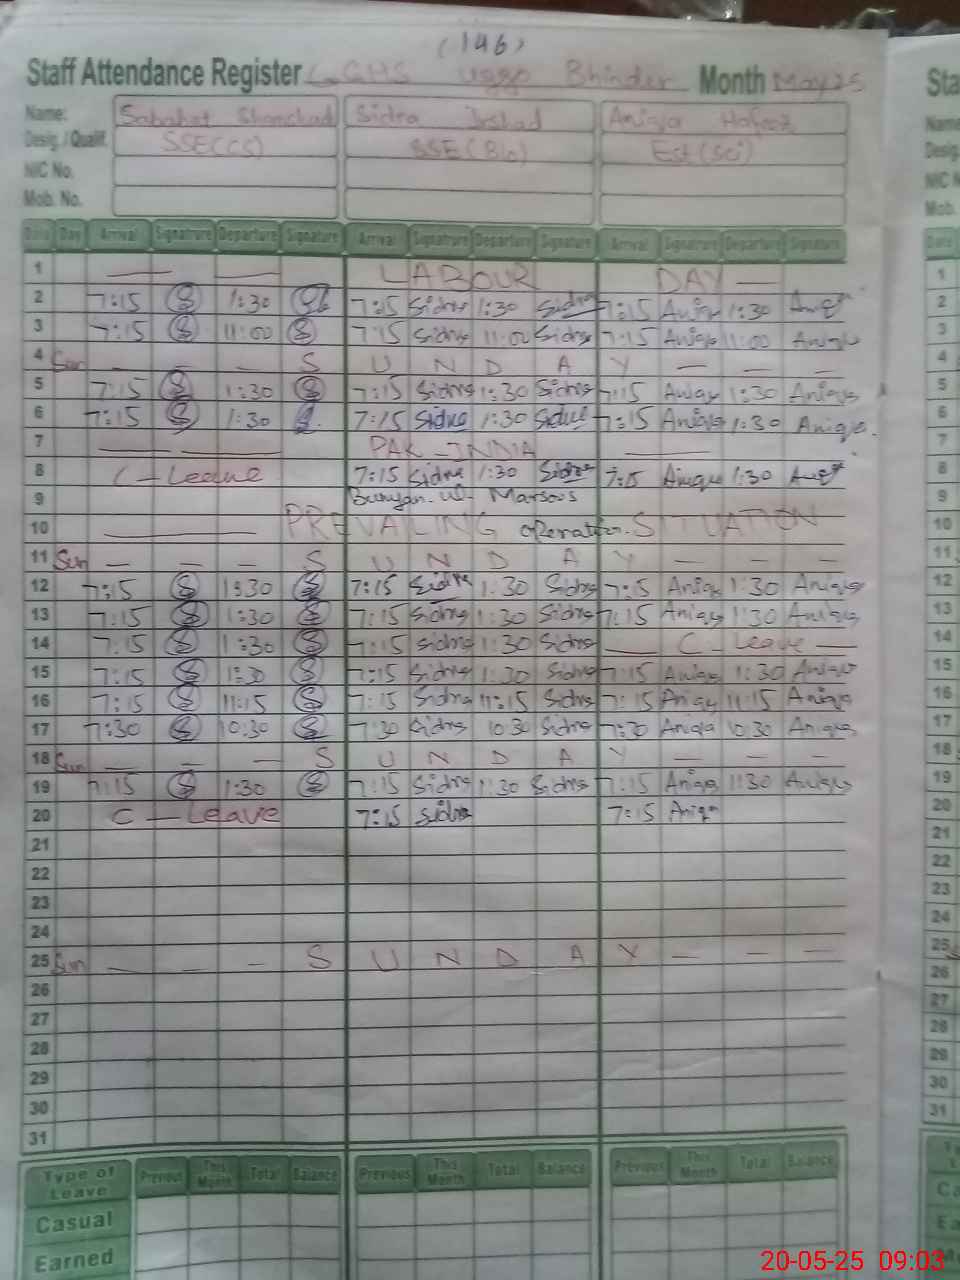 (146)
Staff Attendance Register GGHS Uggo Bhinder Month May 25
Name: Sabahat Shamshad Sidra Irshad Aniqa Hafeez
Desig. / Qualif. SSE(CS) SSE(Bio) Est(Sci)
NIC No.
Mob. No.
Date Day Arrival Signatrure Departure Signature Arrival Signatrure Departure Signature Arrival Signatrure Departure Signature
1 LABOUR DAY
2 7:15 1:30 7:15 Sidra 1:30 Sidra 7:15 Aniqa 1:30 Aniqa
3 7:15 11:00 7:15 Sidra 11:00 Sidra 7:15 Aniqa 11:00 Aniqa
4 Sun — — — S U N D A Y — — —
5 7:15 1:30 7:15 Sidra 1:30 Sidra 7:15 Aniqa 1:30 Aniqa
6 7:15 1:30 7:15 Sidra 1:30 Sidra 7:15 Aniqa 1:30 Aniqa
7 PAK-INDIA
8 C-Leave 7:15 Sidra 1:30 Sidra 7:15 Aniqa 1:30 Aniqa
9 Bunyan-ul-Marsoos
10 PREVAILING operation SITUATION
11 Sun — — — S U N D A Y — — —
12 7:15 1:30 7:15 Sidra 1:30 Sidra 7:15 Aniqa 1:30 Aniqa
13 7:15 1:30 7:15 Sidra 1:30 Sidra 7:15 Aniqa 1:30 Aniqa
14 7:15 1:30 7:15 Sidra 1:30 Sidra — C-Leave —
15 7:15 1:30 7:15 Sidra 1:30 Sidra 7:15 Aniqa 1:30 Aniqa
16 7:15 11:15 7:15 Sidra 11:15 Sidra 7:15 Aniqa 11:15 Aniqa
17 7:30 10:30 7:30 Sidra 10:30 Sidra 7:30 Aniqa 10:30 Aniqa
18 Sun — — — S U N D A Y — — —
19 7:15 1:30 7:15 Sidra 1:30 Sidra 7:15 Aniqa 1:30 Aniqa
20 C-Leave 7:15 Sidra 7:15 Aniqa
21
22
23
24
25 Sun — — — S U N D A Y — — —
26
27
28
29
30
31
Type of Leave Previous This Month Total Balance Previous This Month Total Balance Previous This Month Total Balance
Casual
Earned
20-05-25 09:03